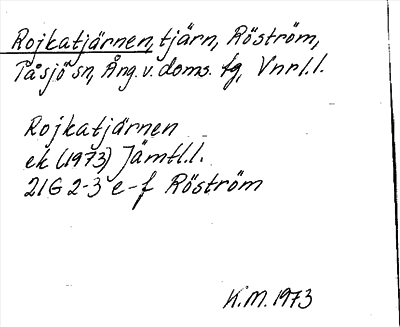 Rojkatjärnen, tjärn, Röström,
Tåsjö sn, Ång. v. doms. fg, Vnrl.l.
Rojkatjärnen
ek (1973) Jämtl.l.
21G 2-3 e-f Röström
K.M. 1973